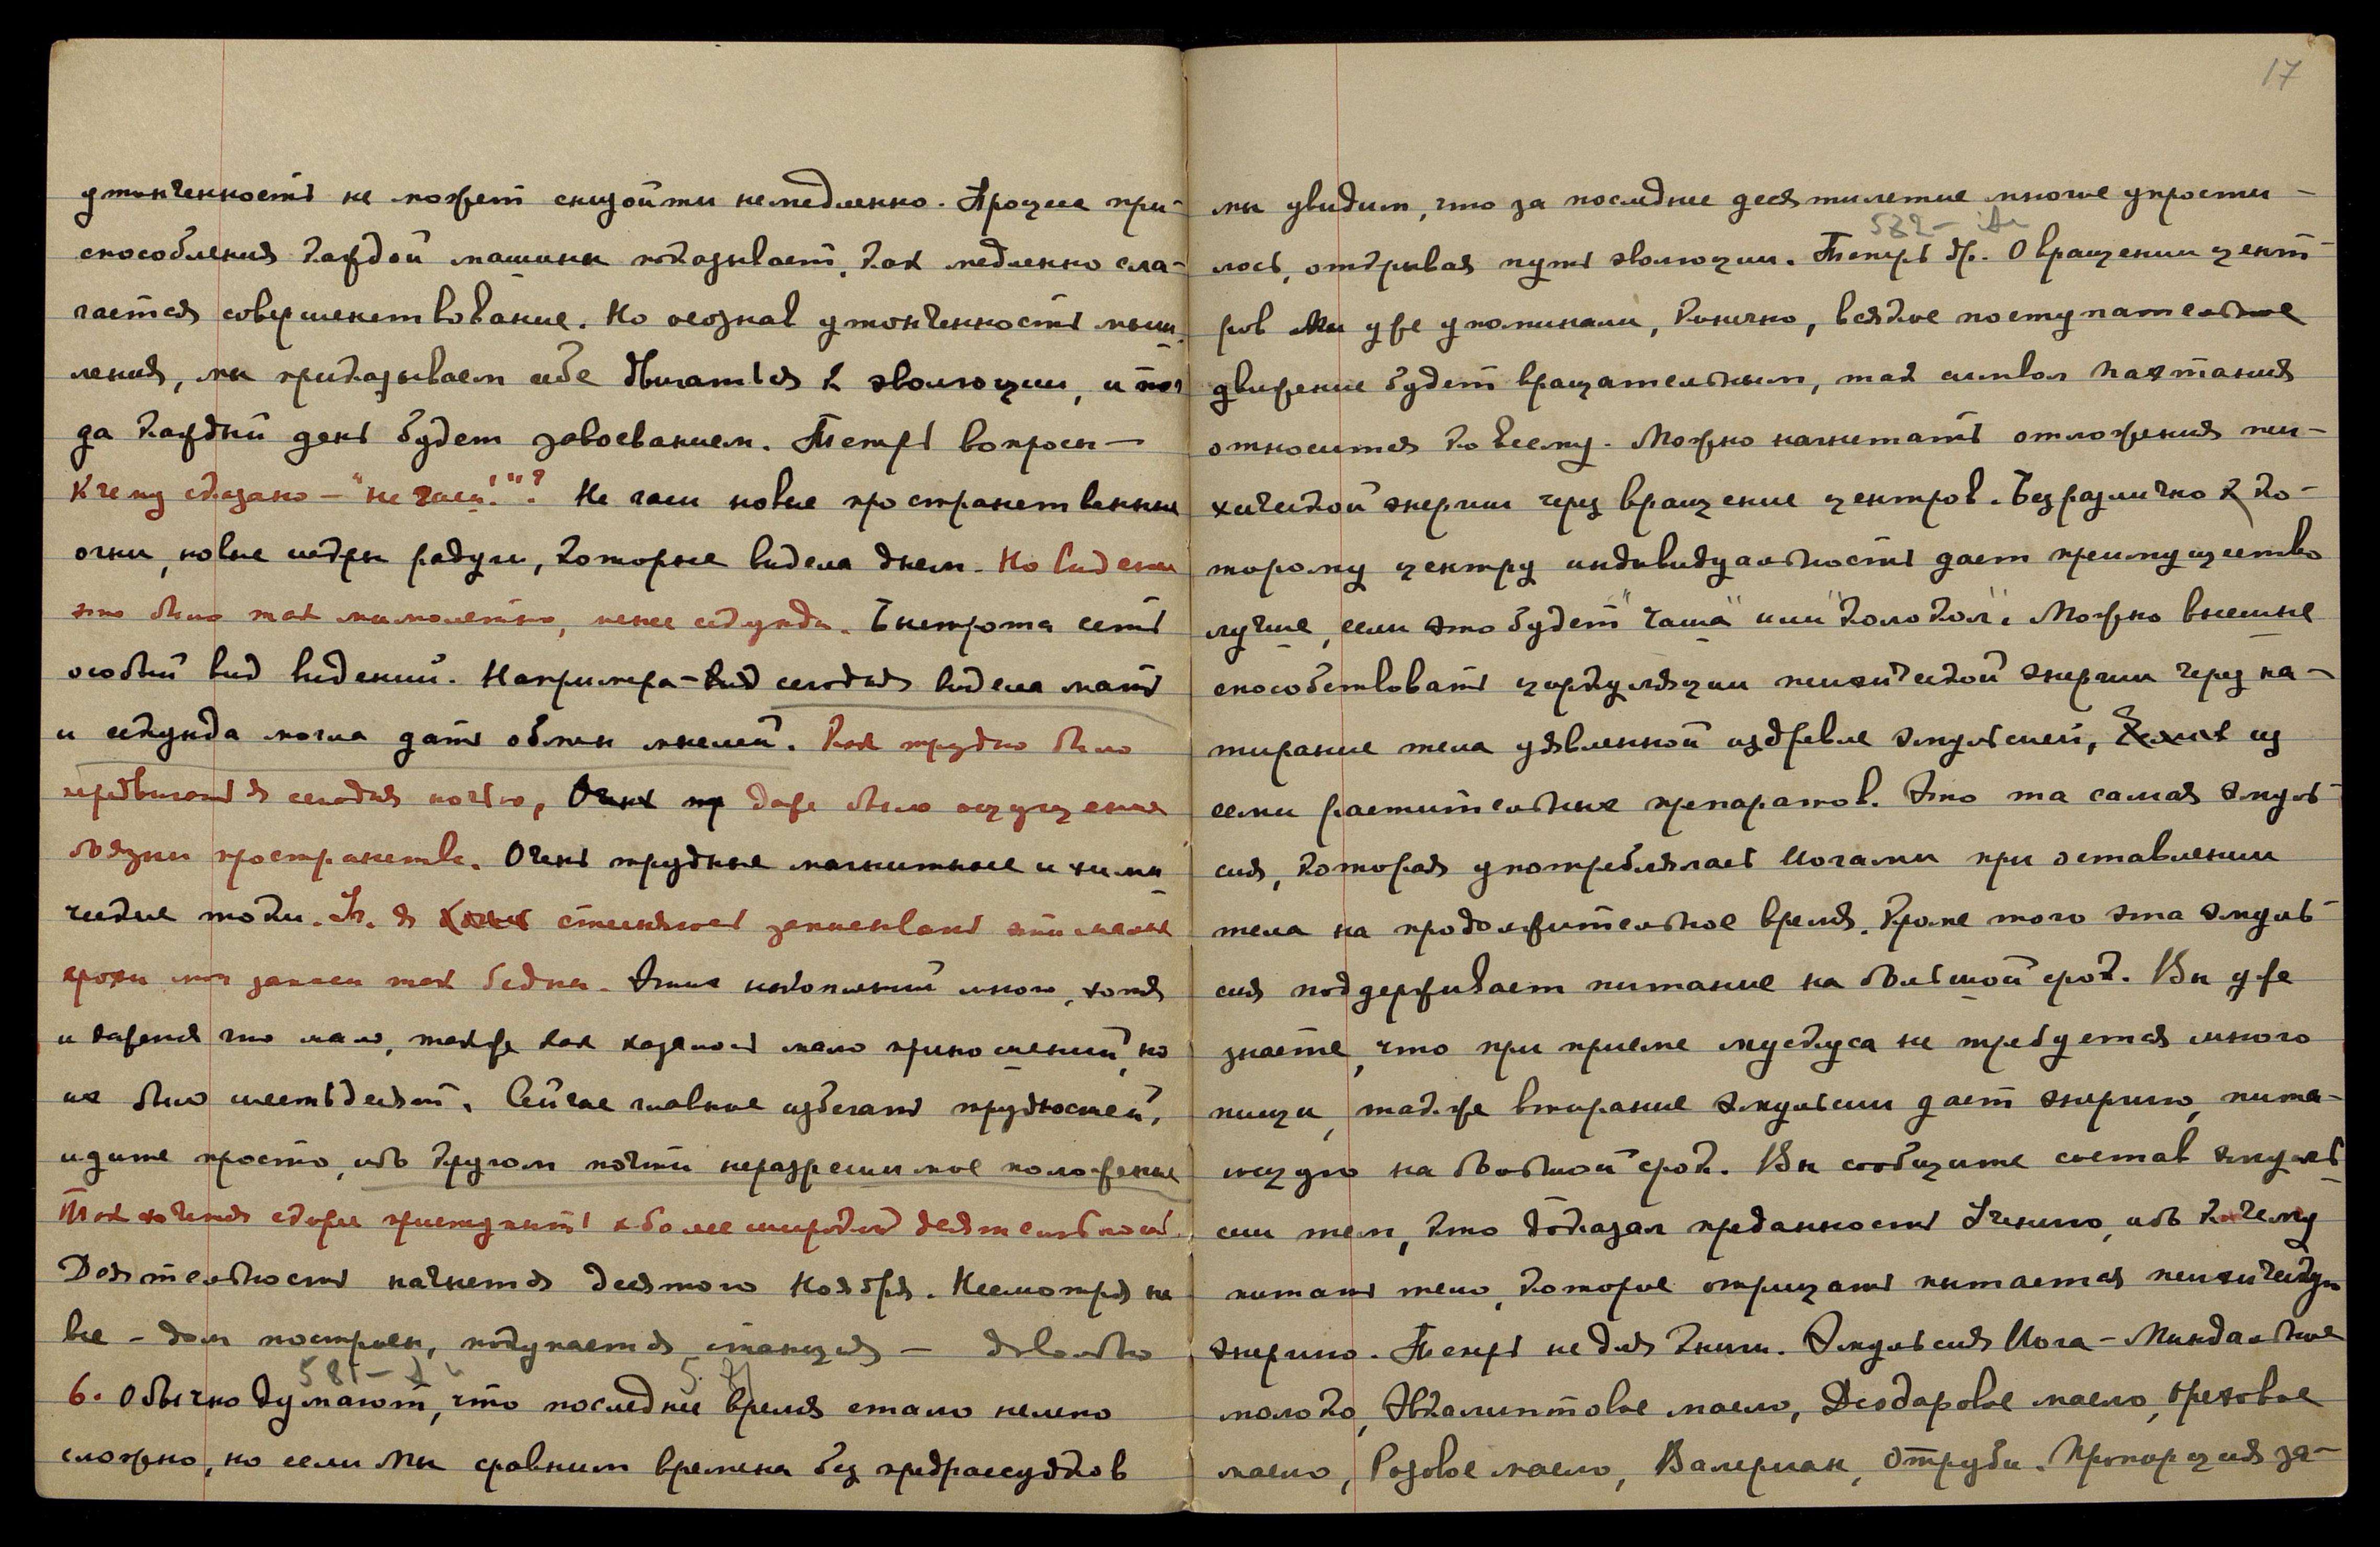 утонченность не может снизойти немедленно. Процесс при-
способления каждой машины показывает, как медленно сла-
гается совершенствование. Но осознав утонченность мыш-
ления, мы приказываем себе двигаться к эволюции, и тог
да каждый день будет завоеванием. Теперь вопросы —
К чему сказано — "не гаси!"? Не гаси новые пространственные
огни, новые искры радуги, которые видела днем. Но видение
это было так мимолетно, менее секунды. Быстрота есть
особый вид видений. Например – вид сегодня видела мать
и секунда могла дать обмен мыслей. Как трудно было
передвигаться сегодня ночью, Очень тр даже было ощущение
вязкого пространства. Очень трудные магнитные и хими
ческие токи. Вл. я стесняюсь записывать эти
мои записи так бедны. Этих накоплений много, хотя
и кажется что мало, также как казалось мало приношений, но
их было шестьдесят. Сейчас главное избегать трудностей,
идите просто, ибо кругом почти неразрешимое положение
Так хочется скорее приступить к более широкой деятельности.
Деятельность начнется десятого Ноября. Несмотря на
все – дом построен, покупается станция — довольно
581 – А 5.
6. Обычно думают, что последнее время стало нелепо
сложно, но если Мы сравним времена без предрассудков
17
мы увидим, что за последнее десятилетие многое упрости –
582 –
лось, открывая путь эволюции. Теперь др. О вращении цент
ров Мы уже упоминали, конечно, всякое поступательное
движение будет вращательным, так символ пахтания
относится ко всему. Можно нагнетать отложения пси –
хической энергии через вращение центров. Безразлично к ко –
торому центру индивидуальность дает преимущество
лучше, если это будет "чаша" или "колокол". Можно внешне
способствовать циркуляции психической энергии через на –
тирание тела уявленной издревле эмульсией, из
семи растительных препаратов. Это та самая эмуль
сия, которая употреблялась Йогами при оставлении
тела на продолжительное время. Кроме того эта эмуль
сия поддерживает питание на большой срок. Вы уже
знаете, что при приеме мускуса не требуется много
пищи, также втирание эмульсии дает энергию, пита –
ющую на большой срок. Вы сообщите состав эмуль
сии тем, кто доказал преданность Учению, ибо к чему
питать тело, которое отрицать пытается психическую
энергию. Теперь не для Книги. Эмульсия Йога – Миндальное
молоко, Эвкалиптовое масло, Деодаровое масло, Ореховое
масло, Розовое масло, Валериан, Отруби. Пропорция за –